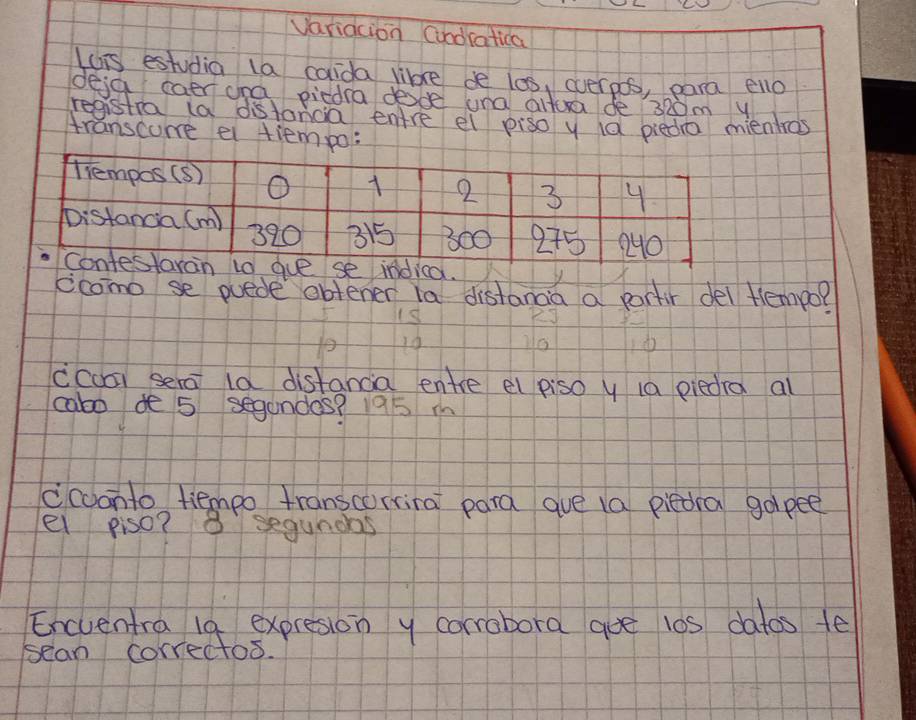 Variación Cuadratica
Luis estudia la caida libre de los cuerpos, para ello
deja caer una piedra desde una altura de 320m y
registra la distancia entre el piso y la piedra mientras
transcurre el tiempo:
Tiempos(s) 0 1 2 3 4
Distancia(m) 320 315 300 275 240
• Contestarán lo que se indica.
¿Como se puede obtener la distancia a partir del tiempo?
5 15 25 35
10 10 10 10
¿Cual será la distancia entre el piso y la piedra al
cabo de 5 segundos? 195 m
¿Cuánto tiempo transcurrirá para que la piedra golpee
el piso? 8 segundos
Encuentra la expresión y corrobora que los datos te
sean correctos.